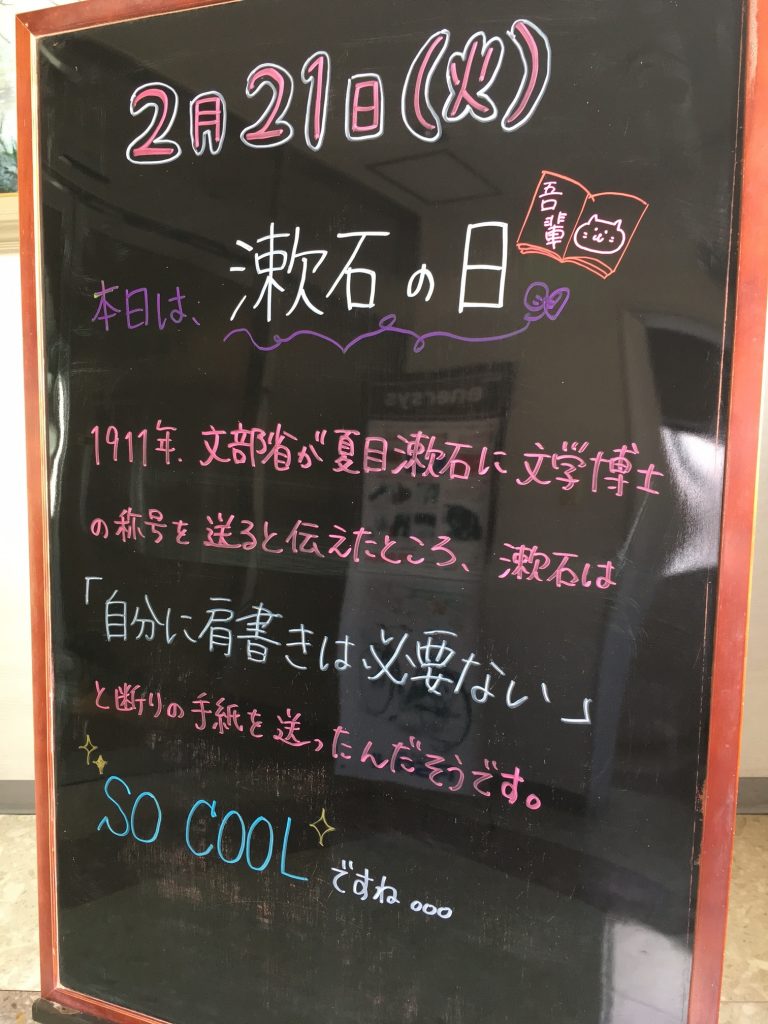 2月21日(火)
吾輩
本日は、漱石の日
1911年、文部省が夏目漱石に文学博士
の称号を送ると伝えたところ、漱石は
「自分に肩書きは必要ない」
と断りの手紙を送ったんだそうです。
SO COOL ですね。。。
enersys